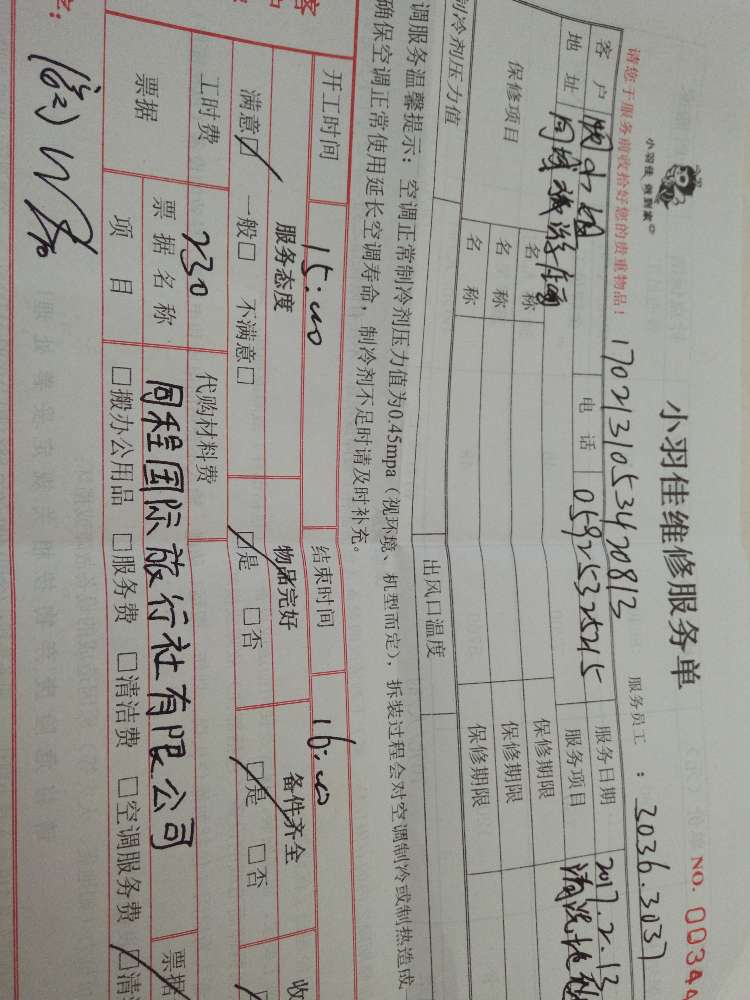 小羽佳维修服务单
NO. 00344
小羽佳 做到家
17021310534708 13
服务员工：3036.3037
请您于服务前收拾好您的贵重物品！
客户 电话 05925325215 服务日期 2017.2.13
地址 服务项目
保修项目 名称 保修期限
名称 保修期限
名称 保修期限
制冷剂压力值 出风口温度
调服务温馨提示：空调正常制冷剂压力值为0.45mpa（视环境、机型而定），拆装过程会对空调制冷或制热造成
确保空调正常使用延长空调寿命，制冷剂不足时请及时补充。
开工时间 15:00 结束时间 16:00
服务态度 物品完好 备件齐全 收
满意□ 一般□ 不满意□ □是 □否 □是 □否
工时费 230 代购材料费
票据 票据名称 同程国际旅行社有限公司 票据
项目 □搬办公用品 □服务费 □清洁费 □空调服务费 □清洁